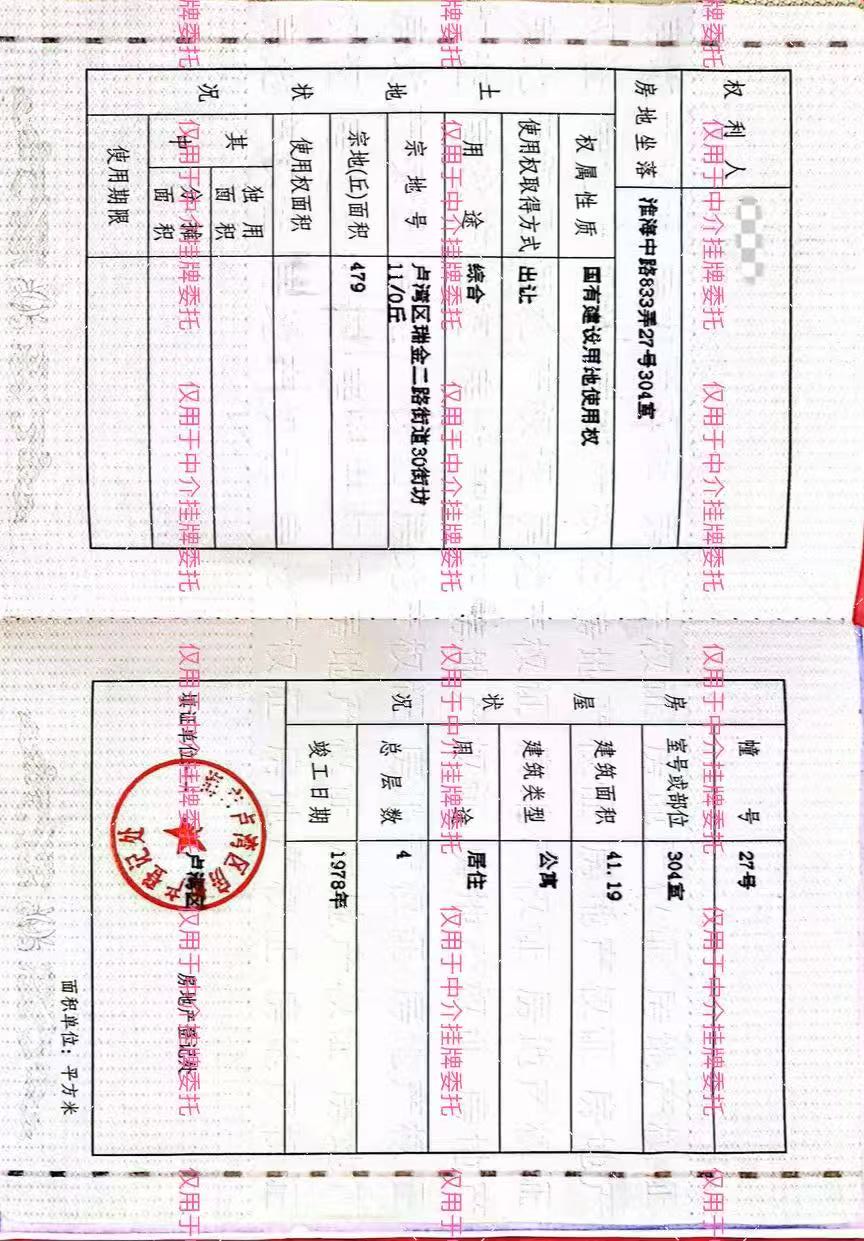 权利人
房地坐落 淮海中路833弄27号304室
土地状况
权属性质 国有建设用地使用权
使用权取得方式 出让
用途 综合
宗地号 卢湾区瑞金二路街道30街坊
11/0丘
宗地(丘)面积 479
使用权面积
其中
独用面积
分摊面积
使用期限
房屋状况
幢号 27号
室号或部位 304室
建筑面积 41.19
建筑类型 公寓
用途 居住
总层数 4
竣工日期 1978年
填证单位:
卢湾区 房地产登记处
面积单位:平方米
仅用于中介挂牌委托
仅用于中介挂牌委托
仅用于中介挂牌委托
仅用于中介挂牌委托
仅用于中介挂牌委托
仅用于中介挂牌委托
仅用于中介挂牌委托
仅用于中介挂牌委托
仅用于中介挂牌委托
仅用于中介挂牌委托
仅用于中介挂牌委托
仅用于中介挂牌委托